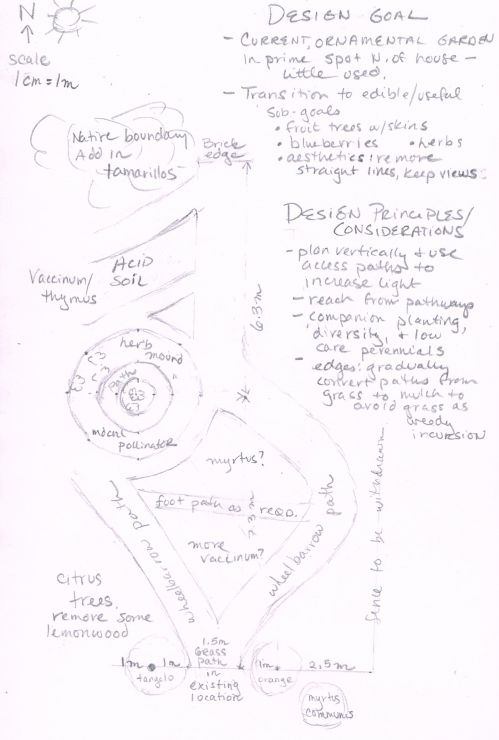 N
scale
1cm = 1m
DESIGN GOAL
- CURRENT, ORNAMENTAL GARDEN
in prime spot N. of house -
little used.
- Transition to edible/useful
sub-goals
• fruit trees w/skins
• blueberries • herbs
• aesthetics: remove
straight lines, keep views
DESIGN PRINCIPLES/
CONSIDERATIONS
- plan vertically & use
access paths to
increase light
- reach from pathways
- companion planting,
diversity, & low
care perennials
- edges: gradually
convert paths from
grass to mulch to
avoid grass as
weedy
incursion
Native boundary
Add in
tamarillos
Brick
edge
ACID
SOIL
Vaccinum/
thymus
6.3 m
herb
mound
path
mound
pollinator
myrtus?
foot path as reqd.
7.3 m
more
vaccinum?
wheelbarrow path
wheelbarrow path
fence to be withdrawn
citrus
trees,
remove some
lemonwood
1.5m
Grass
path
in
existing
location
1m 1m
tangelo
1m
orange
2.5m
myrtus
communis